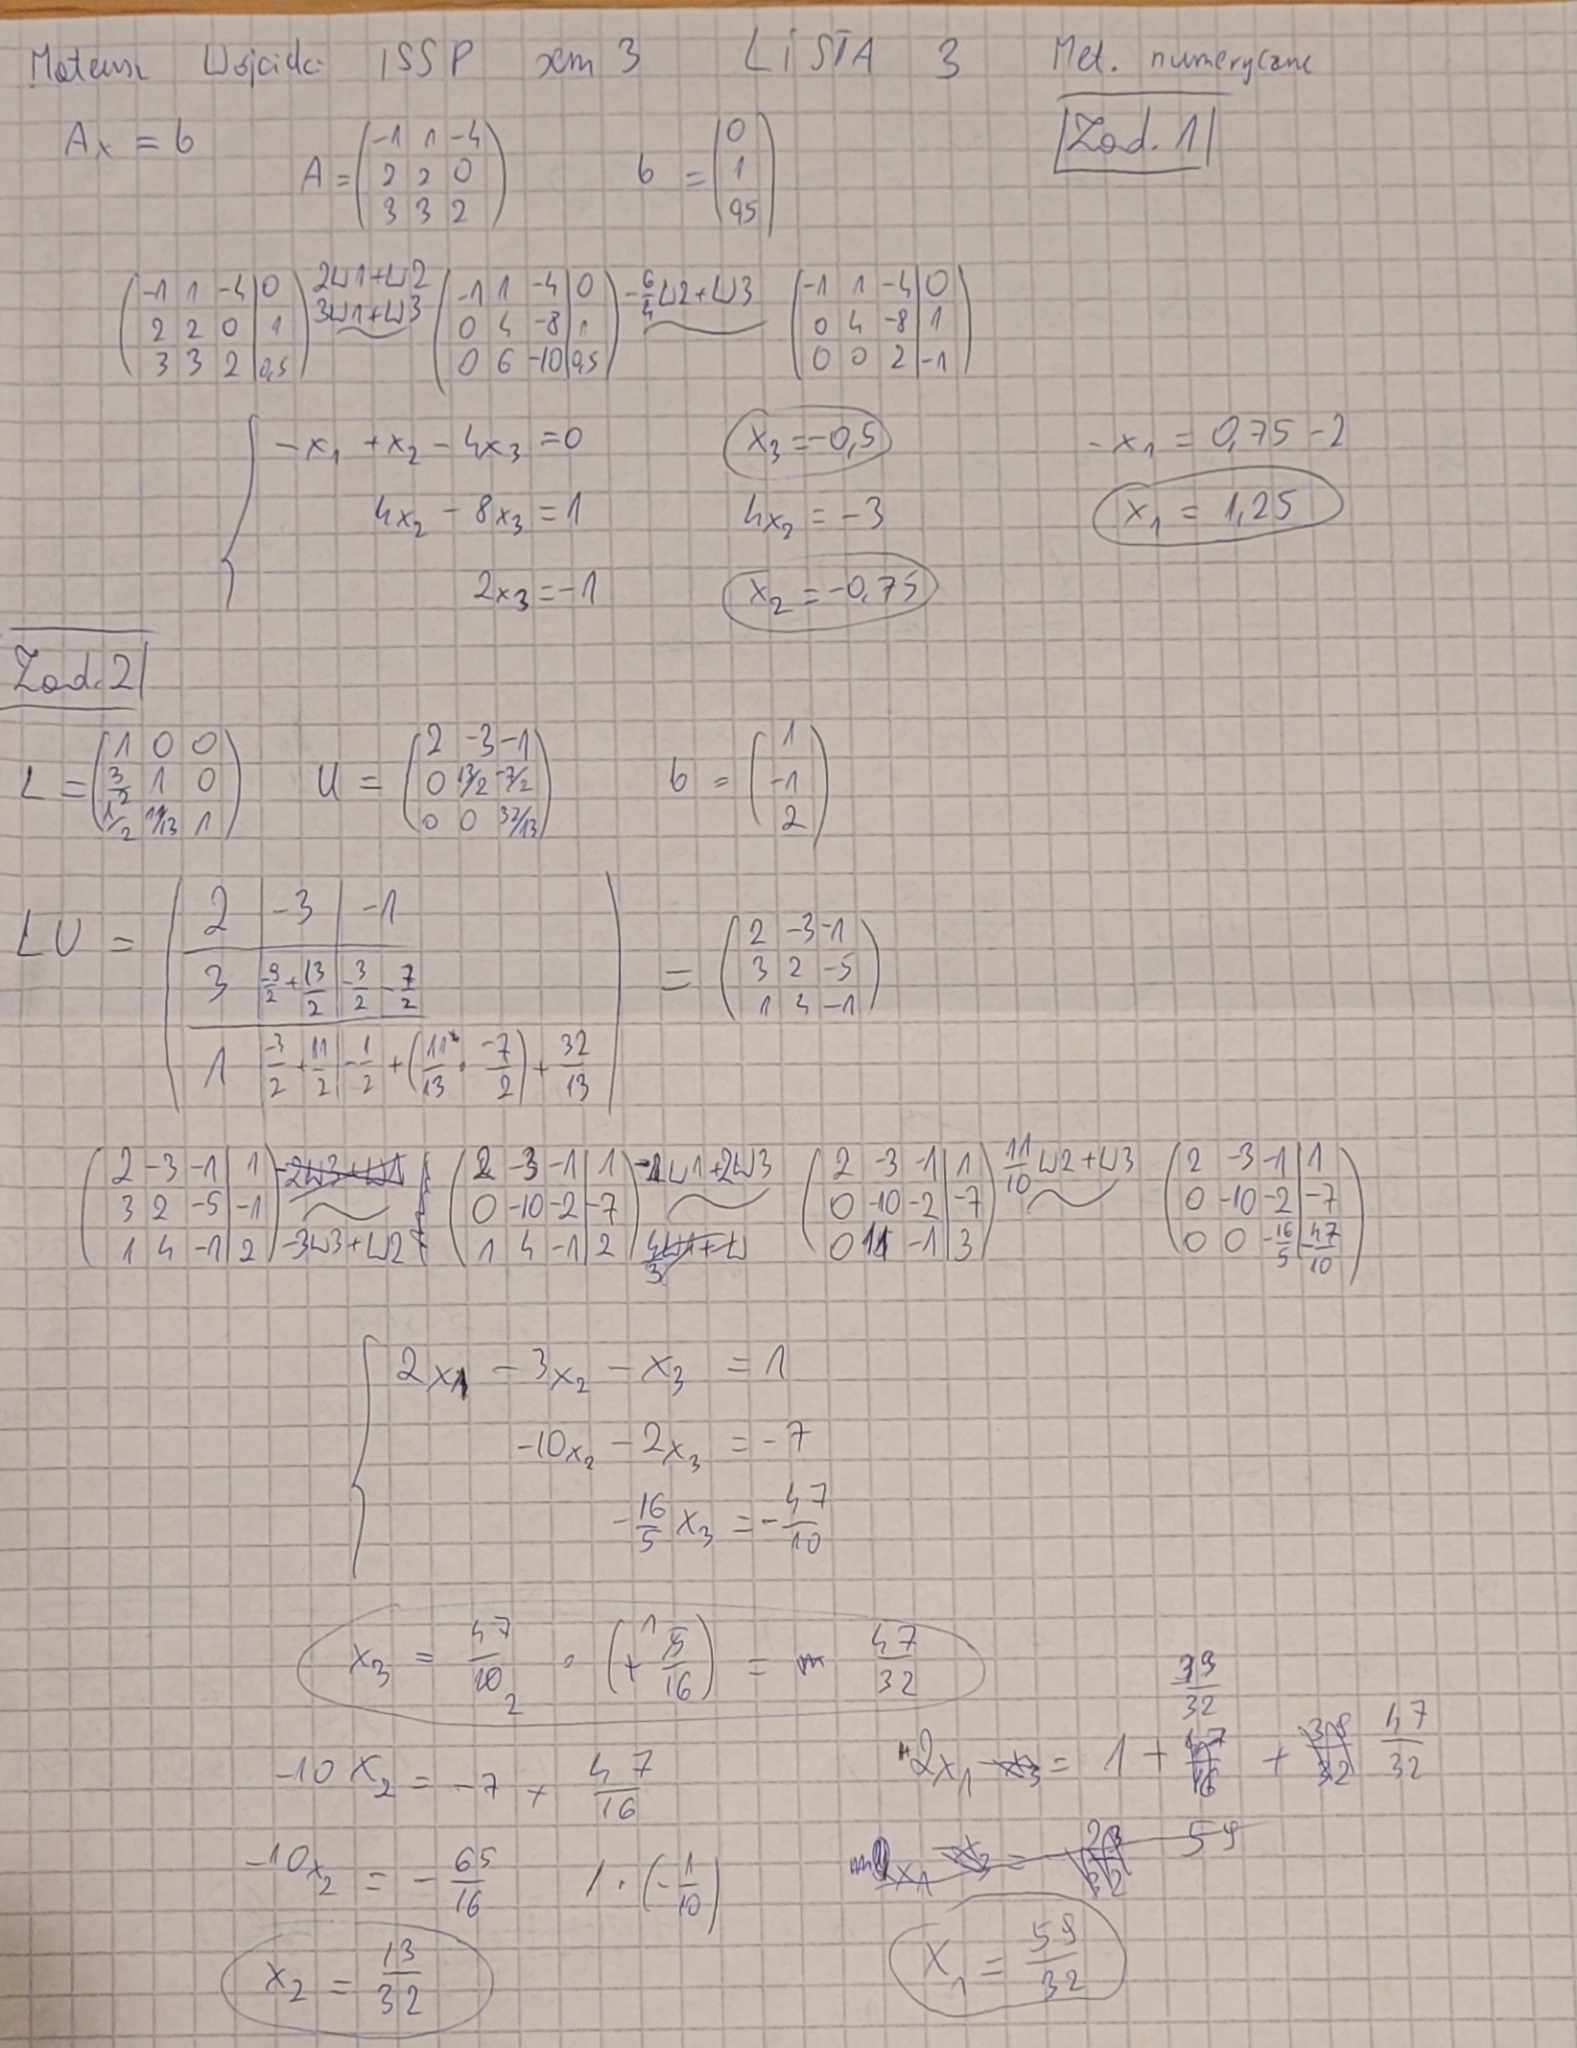 Mateusz Wójcicki ISSP sem 3 LISTA 3 Met. numeryczne
Zad. 1
Ax = b A = (-1 1 -4; 2 2 0; 3 3 2) b = (0; 1; 0,5)
(-1 1 -4 | 0; 2 2 0 | 1; 3 3 2 | 0,5) 2W1+W2 3W1+W3 (-1 1 -4 | 0; 0 4 -8 | 1; 0 6 -10 | 0,5) -6/4 W2+W3 (-1 1 -4 | 0; 0 4 -8 | 1; 0 0 2 | -1)
-x₁ + x₂ - 4x₃ = 0 x₃ = -0,5 -x₁ = 0,75 - 2
4x₂ - 8x₃ = 1 4x₂ = -3 x₁ = 1,25
2x₃ = -1 x₂ = -0,75
Zad. 2
L = (1 0 0; 3/2 1 0; 1/2 11/13 1) U = (2 -3 -1; 0 13/2 -7/2; 0 0 32/13) b = (1; -1; 2)
LU = (2 | -3 | -1; 3 | -9/2 + 13/2 | -3/2 - 7/2; 1 | -3/2 + 11/2 | -1/2 + (11/13 · -7/2) + 32/13) = (2 -3 -1; 3 2 -5; 1 4 -1)
(2 -3 -1 | 1; 3 2 -5 | -1; 1 4 -1 | 2) -3W3+W2 (2 -3 -1 | 1; 0 -10 -2 | -7; 1 4 -1 | 2) -1W1+2W3 (2 -3 -1 | 1; 0 -10 -2 | -7; 0 11 -1 | 3) 11/10 W2+W3 (2 -3 -1 | 1; 0 -10 -2 | -7; 0 0 -16/5 | -47/10)
2x₁ - 3x₂ - x₃ = 1
-10x₂ - 2x₃ = -7
-16/5 x₃ = -47/10
x₃ = 47/10 · (+5/16) = 47/32
-10x₂ = -7 + 47/16 2x₁ = 1 + 39/32 + 47/32
-10x₂ = -65/16 / · (-1/10) 59
x₂ = 13/32 x₁ = 59/32